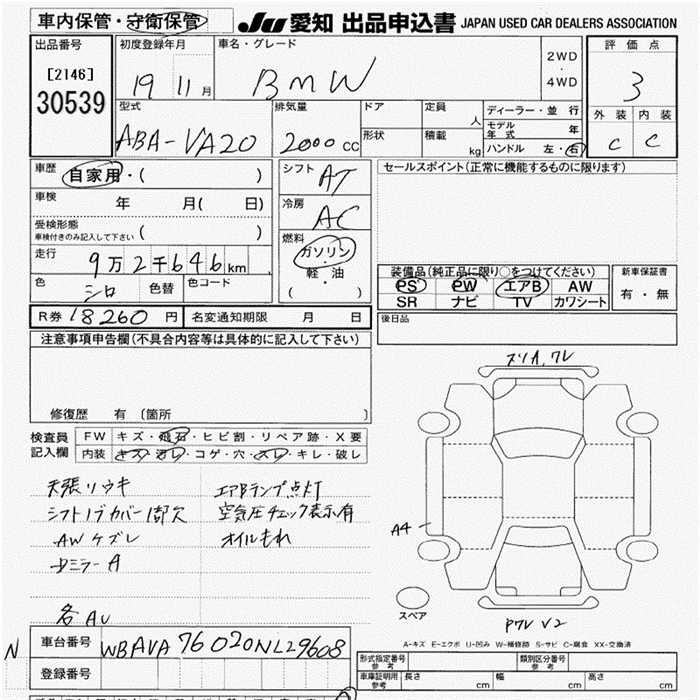 車内保管・守衛保管
JU 愛知 出品申込書 JAPAN USED CAR DEALERS ASSOCIATION
出品番号
[2146]
30539
初度登録年月
19 11 月
車名・グレード
BMW
2WD
・
4WD
評価点
3
外装 内装
C C
型式
ABA-VA20
排気量
2000 CC
ドア
形状
定員
人
積載
kg
ディーラー・並 行
モデル年式 年
ハンドル 左・右
車歴
自家用・( )
車検
年 月( 日)
受検形態
車検付きのみ記入して下さい ( )
走行
9万2千646km
色
シロ
色替
色コード
シフト
AT
冷房
AC
燃料
ガソリン
・
軽・油
( )
セールスポイント(正常に機能するものに限ります)
装備品(純正品に限り○をつけてください)
PS PW エアB AW
SR ナビ TV カワシート
新車保証書
有・無
後日品
R券 18260 円
名変通知期限 月 日
注意事項申告欄(不具合内容等は具体的に記入して下さい)
修復歴 有 〔箇所 〕
検査員
記入欄
FW キズ・飛石・ヒビ割・リペア跡・X要
内装 キズ・汚レ・コゲ・穴・スレ・キレ・破レ
天張リウキ
シフトノブカバー1部欠
AWケズレ
Dミラー A
各AU
エアBランプ点灯
空気圧チェック表示有
オイルもれ
スリA,ワレ
A4
スペア
PワレV2
A-キズ E-エクボ U-凹み W-補修跡 S-サビ C-腐食 XX-交換済
N
車台番号
WBAVA76020NL29608
登録番号
形式指定番号
参考
類別区分番号
参考
車庫証明用
参考
長さ cm
幅 cm
高さ cm